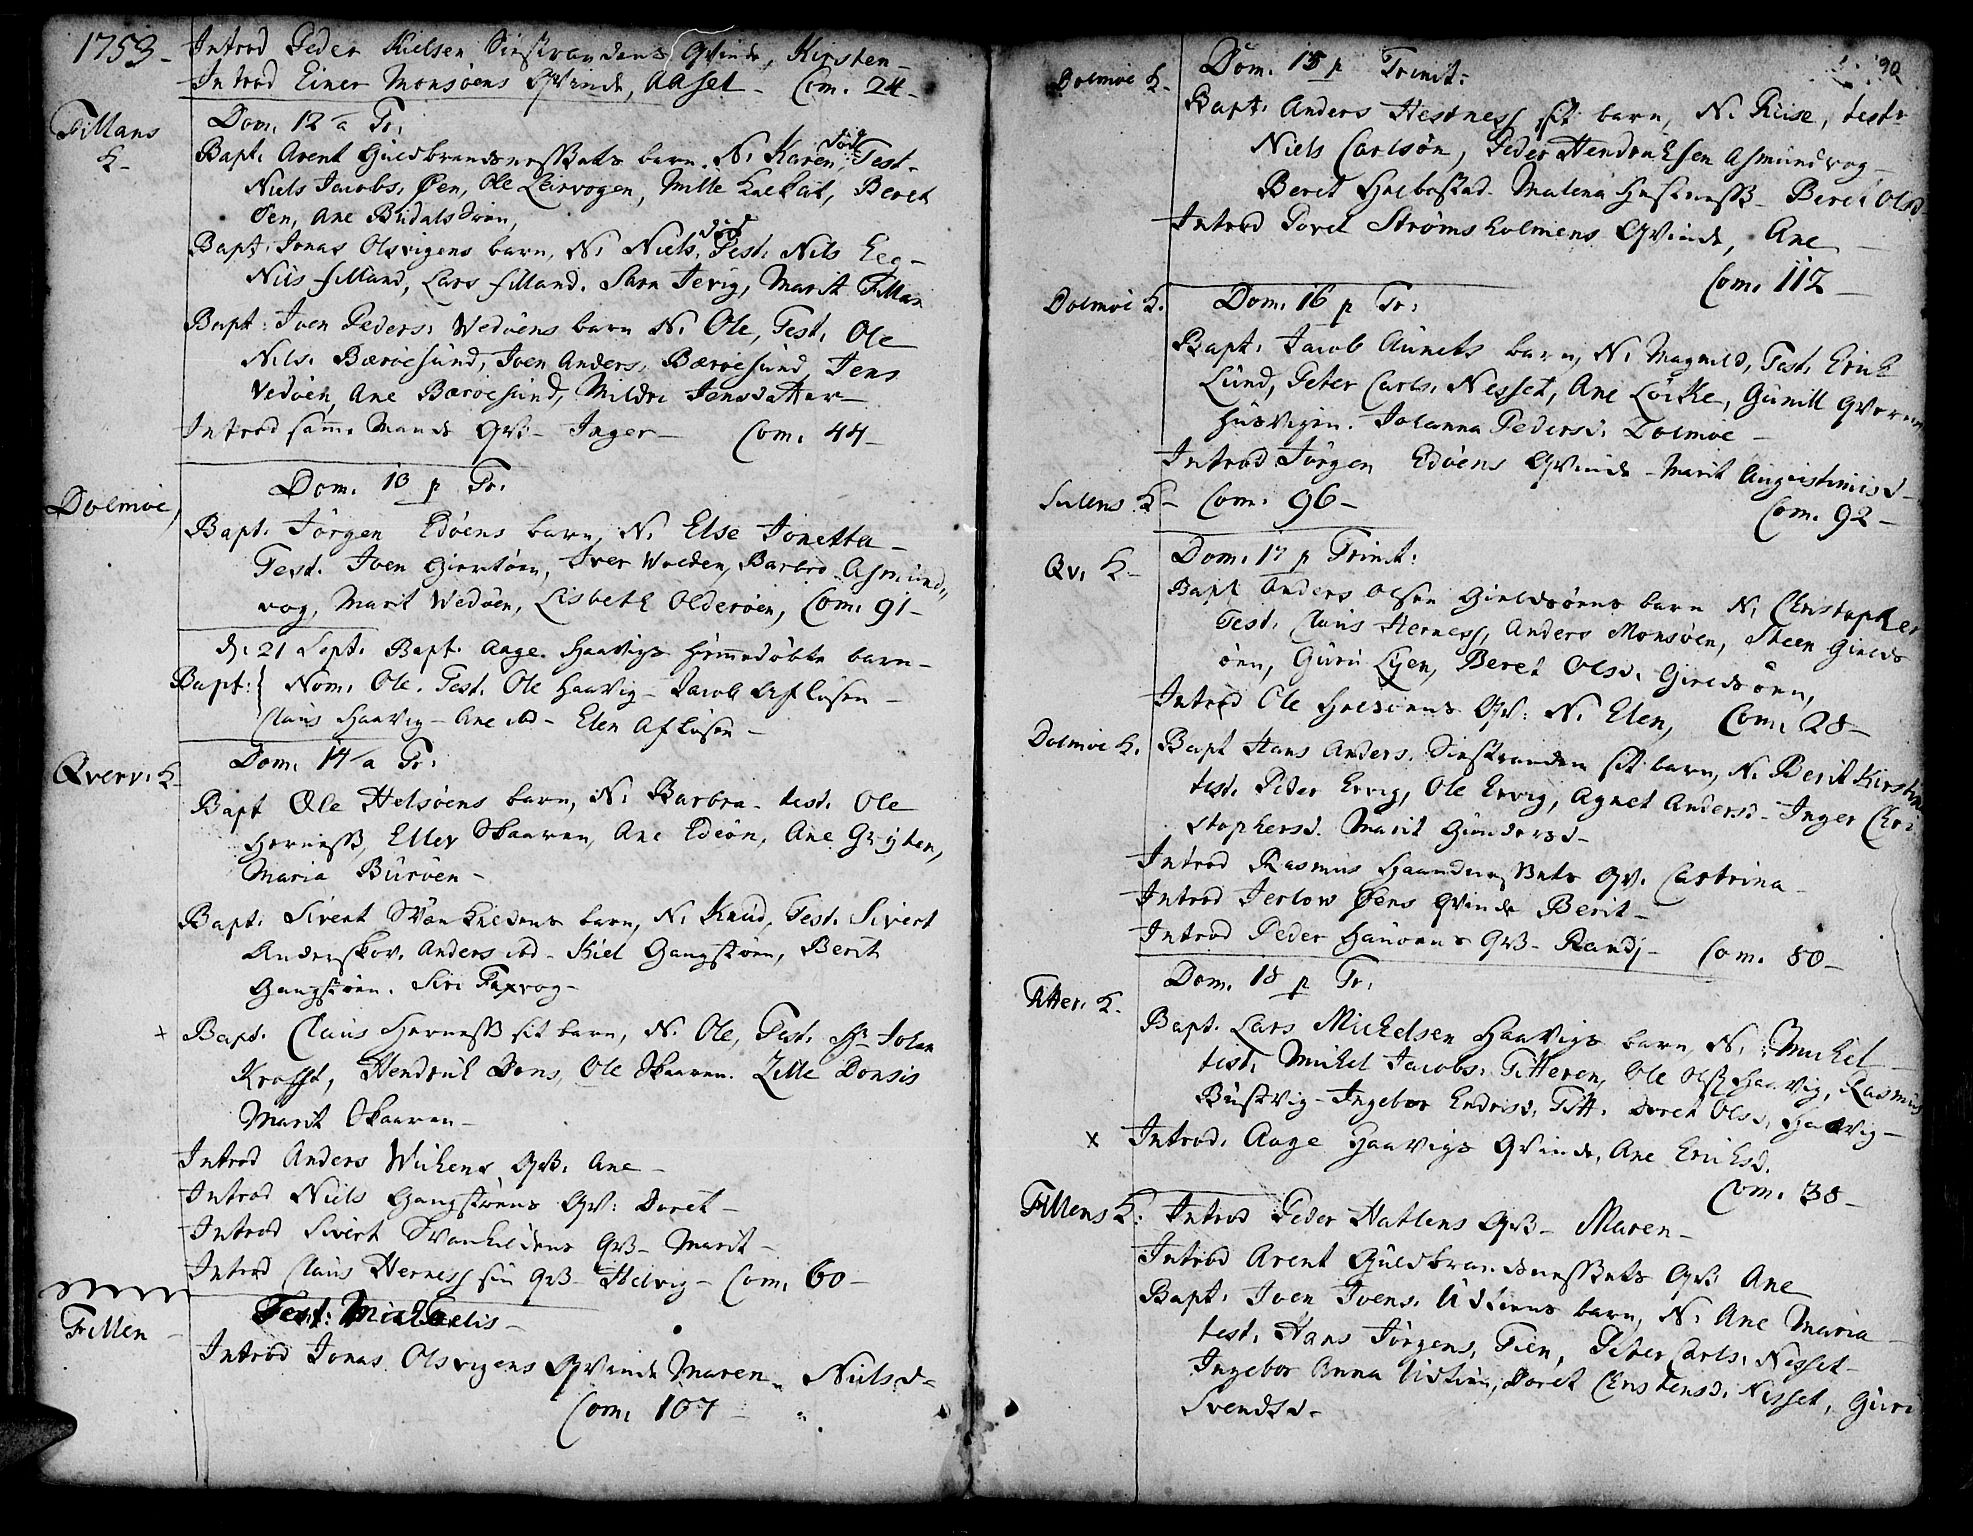 1753.
Introd Peder Nielsen Sinstrandens Qvinde, Kirsten
Introd Einer Monsøens Qvinde, Aasel - Com. 24 -
Fillans K.
Dom. 12 a Tr.
Bapt. Arent Guldbrandsness&ets barn. N. Karen, død Test.
Niels Jacobs. Øen, Ole Leirvogen, Mille, Beret
Øen, Ane
Bapt. Jonas Olsvigens barn, N. Niels. død Test. Nils
Niis Filland, Lars Filland. Sara Jevig, Marit Fillan
Bapt: Joen Peders. Wedøens barn N. Ole, Test. Ole
Nils. Barøesund, Joen Anders. Barøesund, Jens
Vedøen, Ane Barøesund, Mildri Jensdatter
Introd samme Mands Qv. Inger - Com. 44 -
Dolmøe,
Dom. 13 p Tr.
Bapt. Jørgen Edøens barn, N. Else Jonetta -
Test. Joen Giertøen, Iver Wolden, Barbro Asmund-
vog, Marit Wedøen, Lisbeth Olderøen, Com. 91 -
d. 21 Sept. Bapt. Aage Haavigs hiemedøbte barn -
Bapt: Nom. Ole. Test. Ole Haavig - Jacob Afløsen -
Claus Haavig - Ane ibd - Elen Afløsen -
Qverv. K.
Dom. 14 a Tr.
Bapt Ole Helsøens barn, N. Barbra - test. Ole
Herness, Eller Skaaren, Ane Edøen, Ane Gryten,
Maria Burøen -
Bapt. Sivert Svanhildens barn, N. Knud, Test. Sivert
Anderskov. Anders ibd - Kiel Gangstøen, Berit
Gangstøen. Siri Faxvog -
x Bapt. Claus Herness sit barn, N. Ole, Test. Hr Johan
Krafft, Hendrich Dons, Ole Skaaren. Zille Donsis
Marit Skaaren -
Introd Anders Wikens Qv. Ane -
Introd Niels Gangstøens Qv: Doret -
Introd Sivert Svanhildens Qv - Marit -
Introd Claus Herness sin Qv - Helvig - Com. 60 -
Fillen -
Fest: Michaelis -
Introd Jonas Olsvigens Qvinde Maren Nielsd -
Com. 107 -
90
Dolmøe K.
Dom. 15 p Trinit:
Bapt. Anders Hestness sit barn, N. Riise, test.
Niels Carlsøn, Peder Hendrichsen Asmundvog -
Beret Halbostad - Malena Hestness - Beret Olsd
Introd Povel Strømsholmens Qvinde, Ane
Com. 112 -
Dolmøe K.
Dom. 16 p Tr.
Bapt. Jacob Aunets barn, N. Magnild, Test. Erich
Lund, Peter Carls. Nesset, Ane Løcke, Gunill
Husvigen. Johanna Pedersd. Dolmøe -
Introd Jørgen Edøens Qvinde - Marit Augustinusd -
Com. 92 -
Sulens K - Com. 96 -
Qv. K -
Dom. 17 p Trinit:
Bapt Anders Olsen Gieldsøens barn N. Christopher
Test. Claus Herness, Anders Monsøen, Steen Gields
øen, Guru Lyen, Beret Olsd. Gieldsøen,
Introd Ole Helsøens Qv: N. Elen, Com. 28 -
Dolmøe K.
Bapt Hans Anders. Sinstranden sit barn, N. Berit Kirstine
test. Peder Ervig, Ole Ervig, Agnet Andersd - Inger Chri
stophersd. Marit Gundersd -
Introd Rasmus Qv. Catrina -
Introd Øens Qvinde Berit -
Introd Peder Qv - Randj - Com. 80 -
Titter. K.
Dom. 18 p Tr.
Bapt. Lars Michelsen Haavigs barn, N. Michel
test. Michel Jacobs. Titteren, Ole Ols. Haavig, Rasmus
Bustvig - Ingebor Endrisd. Titt. Doret Olsd. Haavig -
x Introd. Aage Haavigs Qvinde, Ane Erichsd.
Com. 38 -
Fillens K. Introd Peder Hatlens Qv - Maren -
Introd Arent Guldbrandsnessets Qv: Ane
Bapt. Joen Joens. Ustiens barn, N. Ane Maria -
test. Hans Jørgens. Tien, Peter Carls. Nesset -
Ingebor Anna Ustien, Doret Christensd. Nesset, Guru
Svendsd -